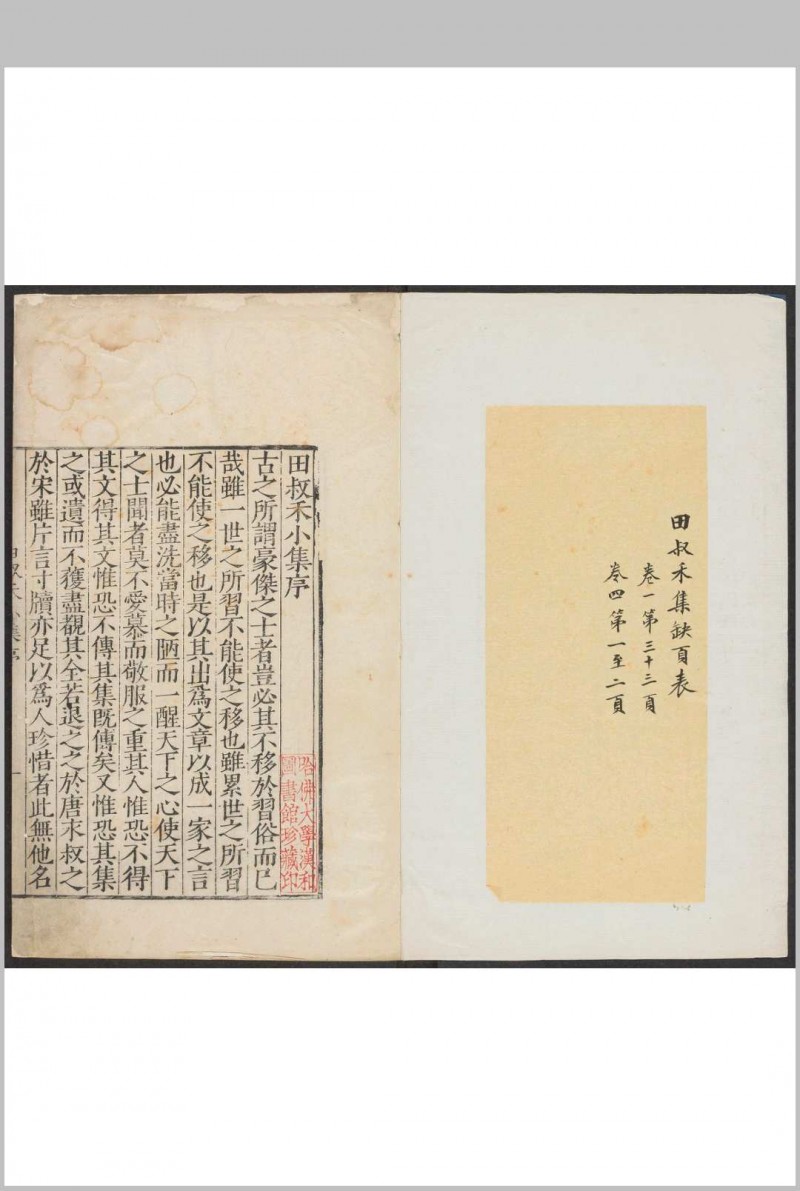 田叔禾集缺頁表
卷一第三十三頁
卷四第一至二頁
田叔禾小集序
古之所謂豪傑之士者豈必其不移於習俗而已
哉雖一世之所習不能使之移也雖累世之所習
不能使之移也是以其出爲文章以成一家之言
也必能盡洗當時之陋而一醒天下之心使天下
之士聞者莫不愛慕而敬服之重其人惟恐不得
其文得其文惟恐不傳其集既傳矣又惟恐其集
之或遺而不獲盡覩其全若退之之於唐永叔之
於宋雖片言寸牘亦足以爲人珍惜者此無他名
田叔禾小集序
一
哈佛大學漢和
圖書館珍藏印